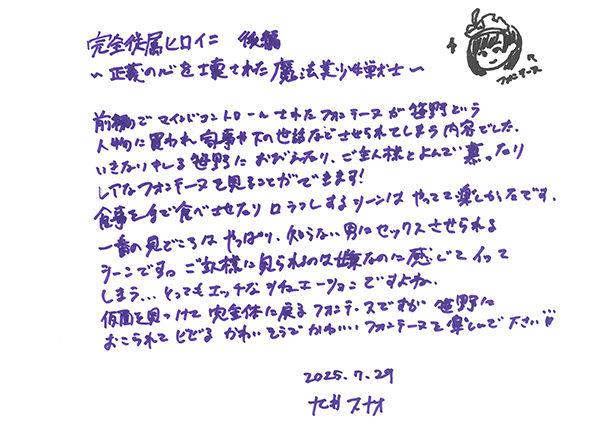 完全従属ヒロイン 後編
～正義の心を壊された魔法美少女戦士～
フォンテーヌ
前編でマインドコントロールされたフォンテーヌが笹野という
人物に買われ食事や下の世話などさせられてしまう内容でした。
いきなりキレる笹野におびえたり、ご主人様とよんで慕ったり
してなフォンテーヌを見ることができます!
食事を手で食べさせたり口うつしするシーンはやってて楽しかったです。
一番の見どころはやっぱり、知らない男にセックスさせられる
シーンです。ご主人様に見られるのは嫌なのに感じてイッて
しまう...とってもエッチなシチュエーションですよね。
仮面を見つけて完全体に戻るフォンテーヌですが笹野に
おこられてビビる かわいそうでかわいいフォンテーヌを楽しんで下さい
2025.7.29
スナオ